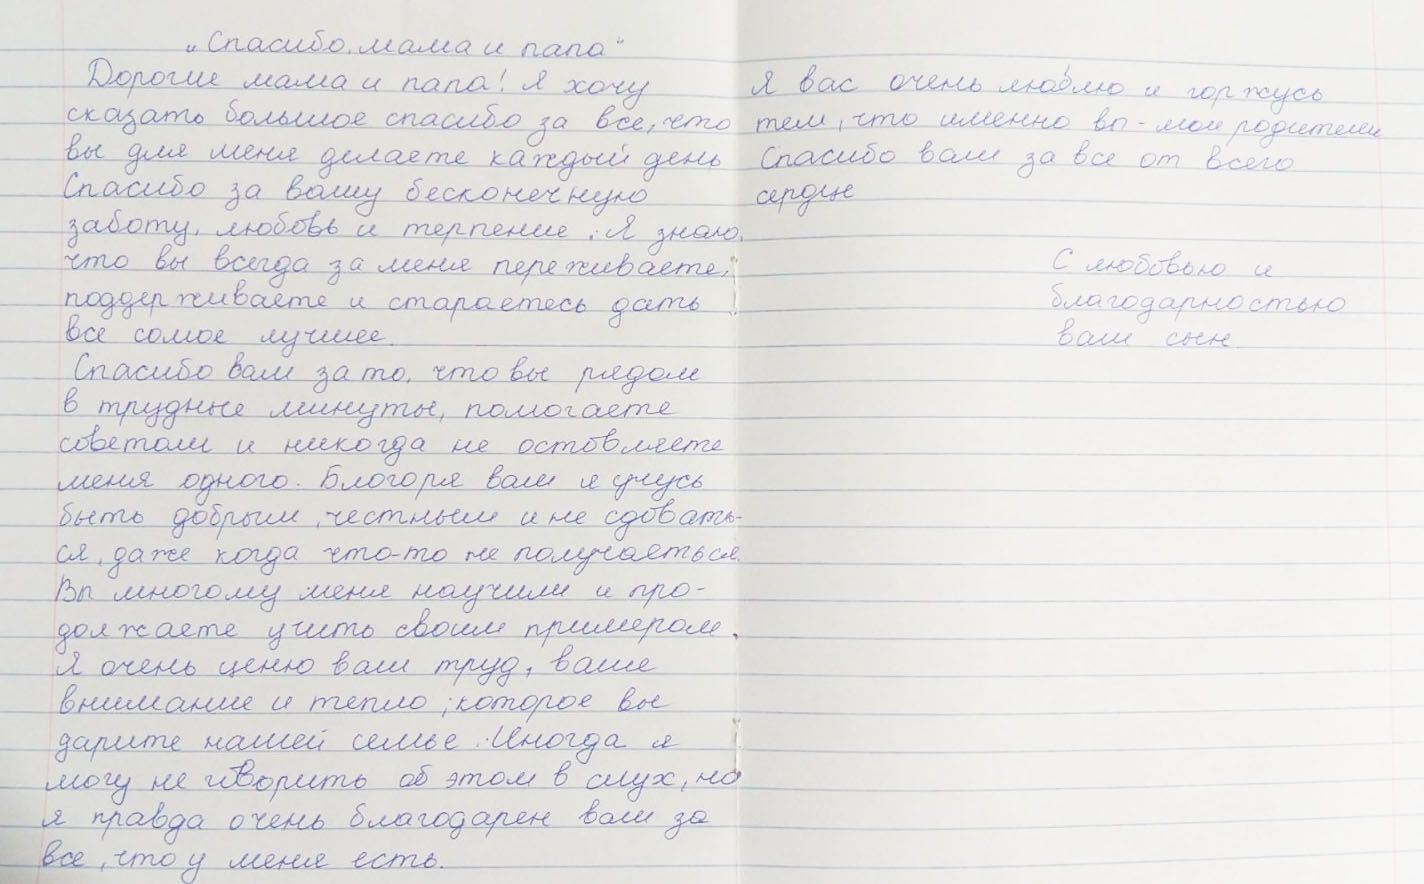 „Спасибо, мама и папа"
Дорогие мама и папа! Я хочу
сказать большое спасибо за все, что
вы для меня делаете каждый день
Спасибо за вашу бесконечную
заботу, любовь и терпение. Я знаю,
что вы всегда за меня переживаете,
поддерживаете и стараетесь дать
все самое лучшее.
Спасибо вам за то, что вы рядом
в трудные минуты, помогаете
советами и никогда не остовляете
меня одного. Благоря вам я учусь
быть добрым, честным и не сдовать-
ся, даже когда что-то не получаеться.
Вы многому меня научили и про-
должаете учить своим примером.
Я очень ценю ваш труд, ваше
внимание и тепло, которое вы
дарите нашей семье. Иногда я
могу не говорить об этом в слух, но
я правда очень благодарен вам за
все, что у меня есть.
Я вас очень люблю и горжусь
тем, что именно вы - мои родители
Спасибо вам за все от всего
сердце
С любовью и
благодарностью
ваш сын.